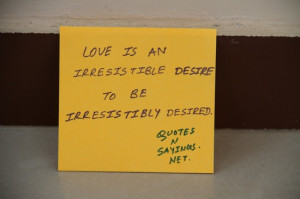 LOVE IS AN
IRRESISTIBLE DESIRE
TO BE
IRRESISTIBLY DESIRED.
QUOTES
N
SAYINGS.
NET.